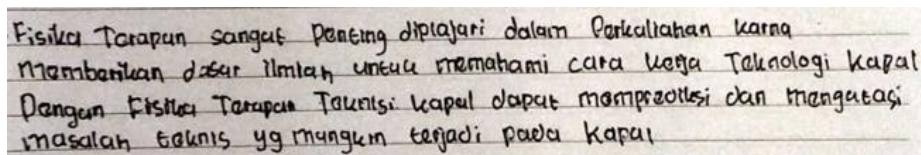 Fisika Tarapan sangat Penting diplajari dalam Perkuliahan karna
mambarikan dasar ilmiah untuk memahami cara kerja Teknologi kapal
Dangan Fisika Tarapan Teknisi kapal dapat mamprediksi dan mengatasi
masalah teknis yg mungkin terjadi pada kapal